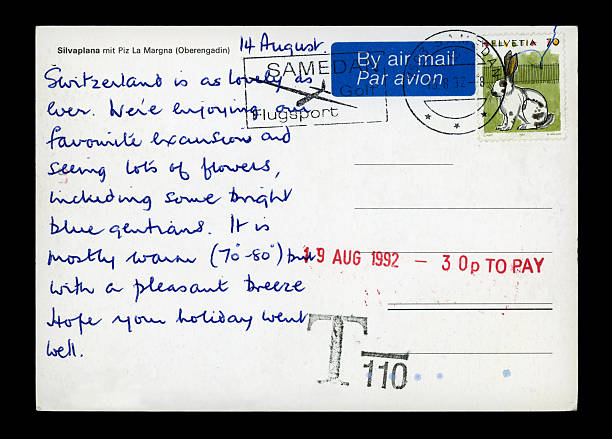 Silvaplana mit Piz La Margna (Oberengadin)
14 August.
Switzerland is as lovely as
ever. We're enjoying our
favourite excursions and
seeing lots of flowers,
including some bright
blue gentians. It is
mostly warm (70°-80°) but
with a pleasant breeze
Hope your holiday went
well.
SAMEDAN
Golf
Flugsport
By air mail
Par avion
HELVETIA 70
19 AUG 1992 — 30p TO PAY
T
110